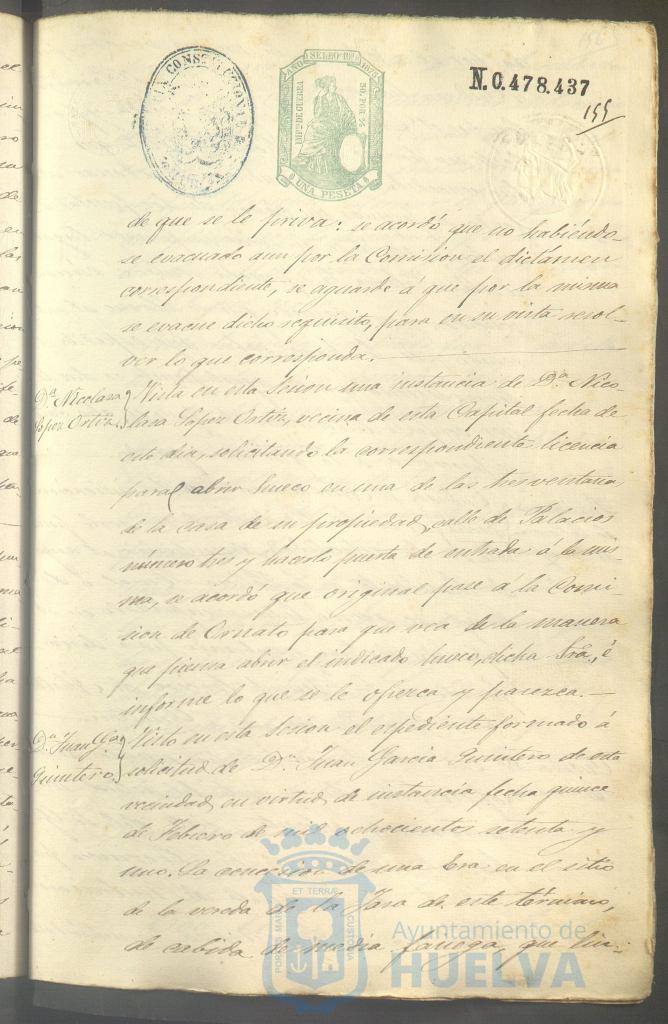 N. 0.478.437
155
AÑO SELLO 11º 1875
IMPTO DE GUERRA
50 PUR. %
UNA PESETA
de que se le priva: se acordó que no habiendo-
se evacuado aun por la Comision el dictámen
correspondiente, se aguarde á que por la misma
se evacue dicho requisito, para en su vista resol-
ver lo que corresponda.
Dª Nicolasa
Lopez Ortiz.
Vista en esta Sesion una instancia de Dª Nico-
lasa Lopez Ortiz, vecina de esta Capital fecha de
este dia, solicitando la correspondiente licencia
para abrir hueco en una de las tres ventanas
de la casa de su propiedad, calle de Palacios
número tres y hacerlo puerta de entrada á la mis-
ma, se acordó que original pase á la Comi-
sion de Ornato para que vea de la manera
que piensa abrir el indicado hueco, dicha Srª, é
informe lo que se le ofrezca y parezca.
Dn Juan Gª
Quintero.
Visto en esta Sesion el espediente formado á
solicitud de Dn Juan Garcia Quintero de esta
vecindad, en virtud de instancia fecha quince
de Febrero de mil ochocientos setenta y
uno. La concesion de una Era en el sitio
de la vereda de la Jara de este término,
de cabida de media fanega, que lin-
PORTUS MARIS ET TERRÆ CUSTODIA
Ayuntamiento de
HUELVA